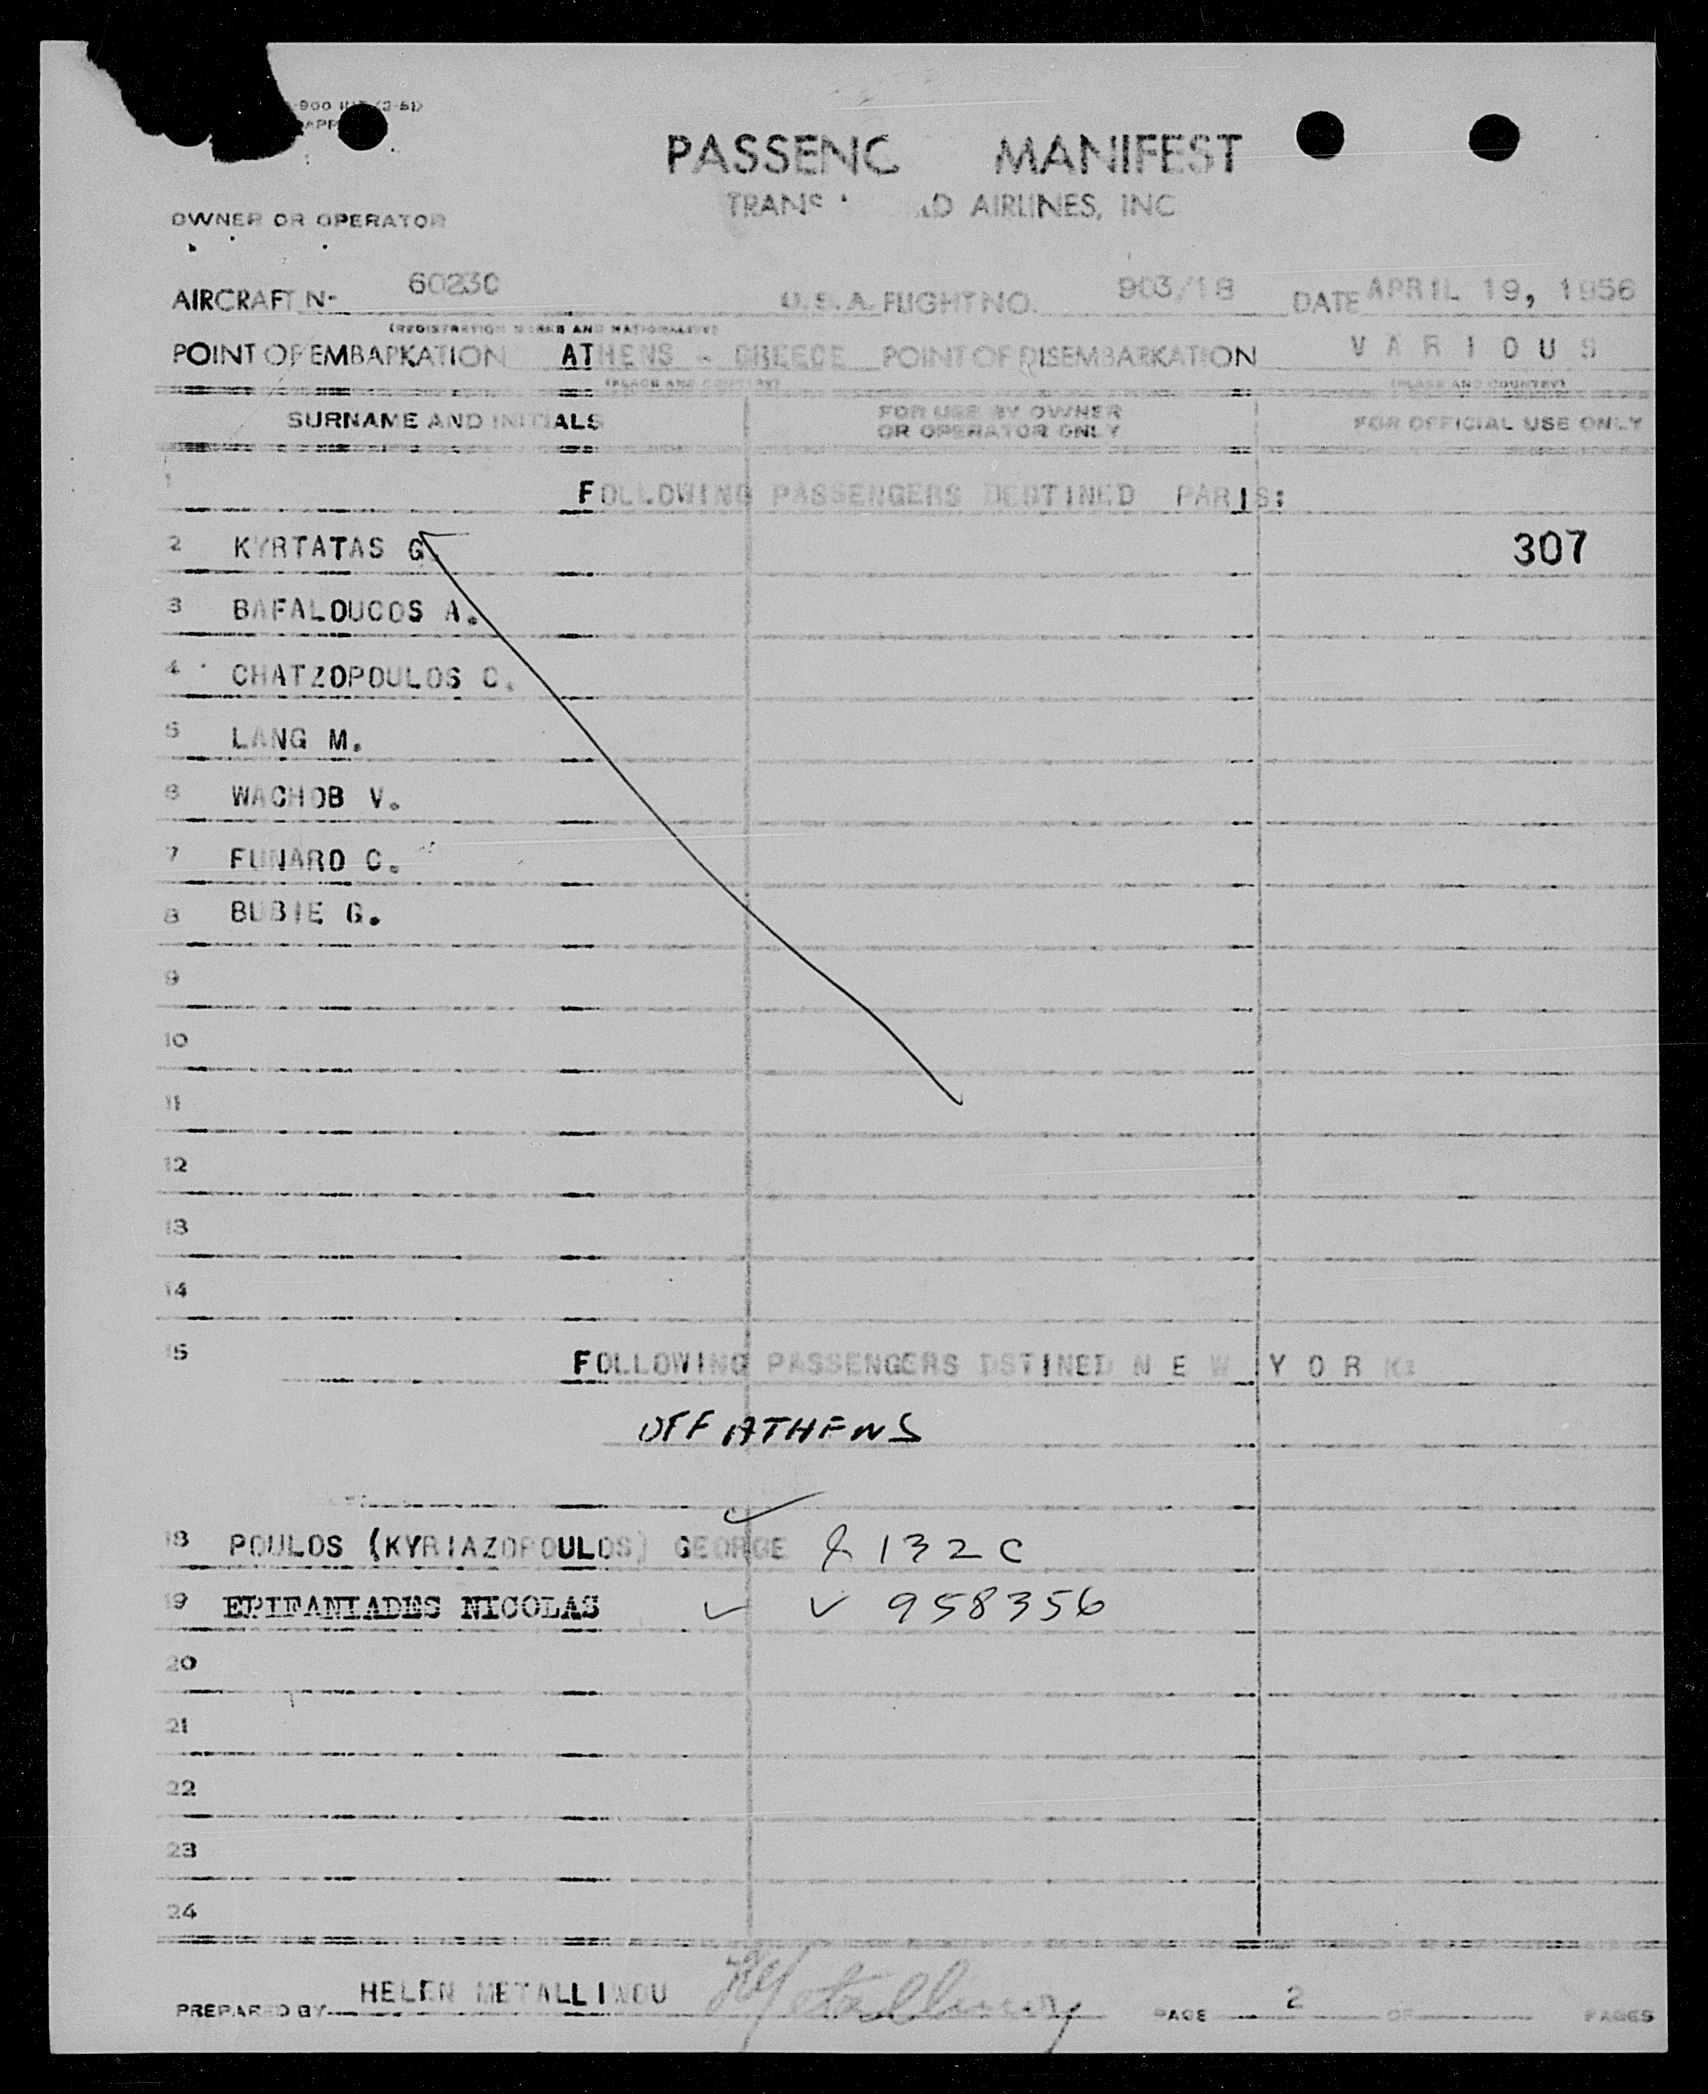 -900
(3-51)
PASSENG MANIFEST
TRANS AIRLINES, INC
OWNER OR OPERATOR
AIRCRAFT No 6023C U.S.A. FLIGHT NO. 903/18 DATE APRIL 19, 1956
(REGISTRATION MARKS AND NATIONALITY)
POINT OF EMBARKATION ATHENS - GREECE POINT OF DISEMBARKATION V A R I O U S
(PLACE AND COUNTRY) (PLACE AND COUNTRY)
SURNAME AND INITIALS FOR USE BY OWNER OR OPERATOR ONLY FOR OFFICIAL USE ONLY
1 FOLLOWING PASSENGERS DESTINED PARIS:
2 KYRTATAS G. 307
3 BAFALOUCOS A.
4 CHATZOPOULOS C.
5 LANG M.
6 WACHOB V.
7 FUNARO C.
8 BUBIE G.
9
10
11
12
13
14
15 FOLLOWING PASSENGERS DSTINED N E W Y O R K:
OFF ATHENS
18 POULOS (KYRIAZOPOULOS) GEORGE 132 C
19 EPIFANIADES NICOLAS ✓ ✓ 958356
20
21
22
23
24
PREPARED BY HELEN METALLINOU PAGE 2 OF PAGES